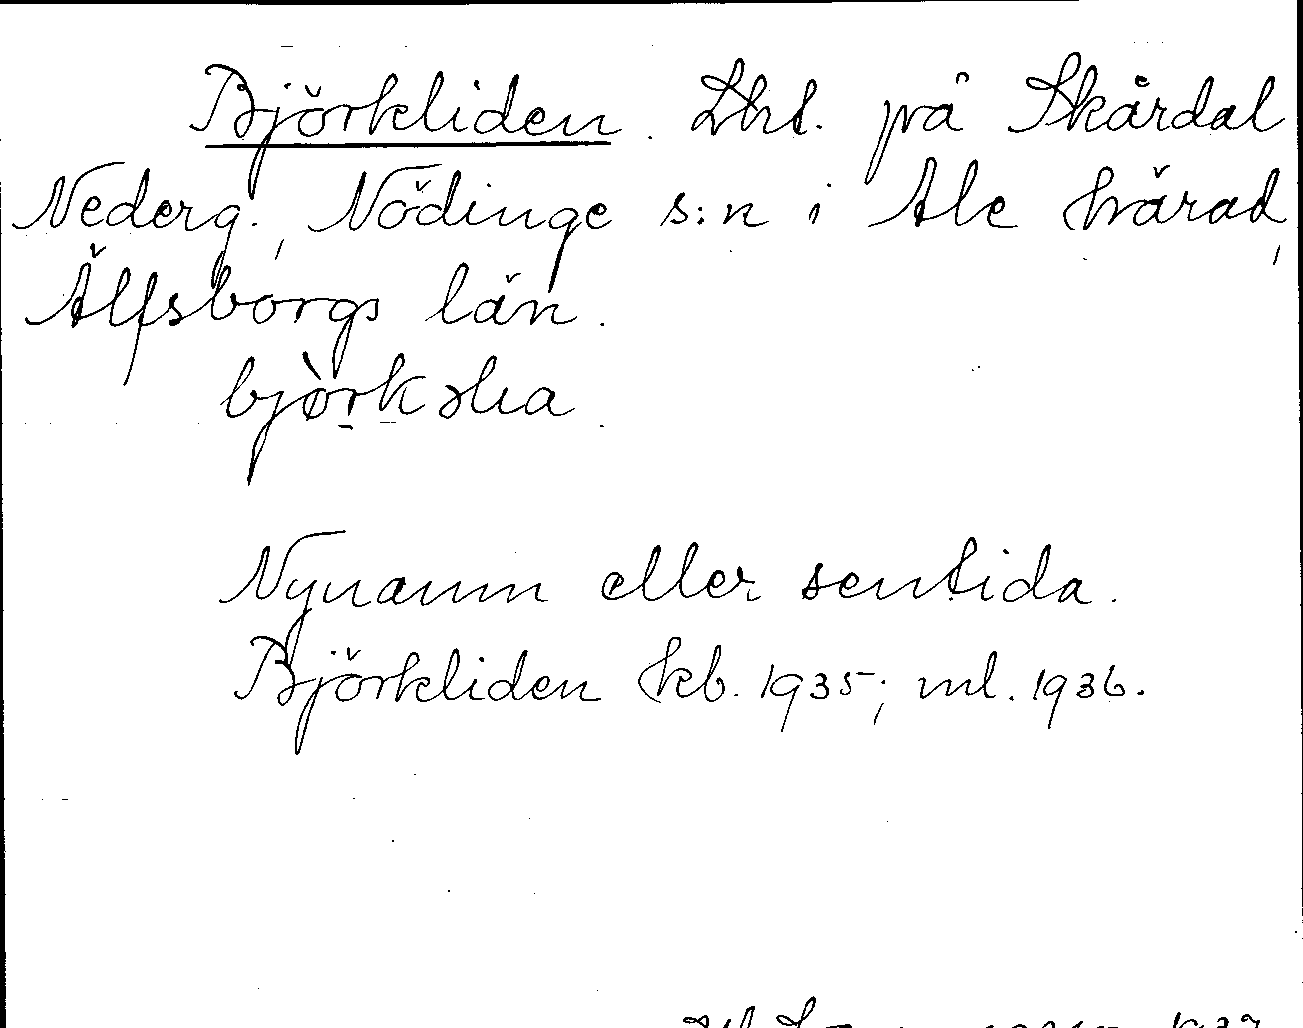 Björkliden. Lht. på Skårdal
Nederg., Nödinge s:n i Ale härad,
Älfsborgs län.
Nynamn eller sentida.
Björkliden kb. 1935; ml. 1936.